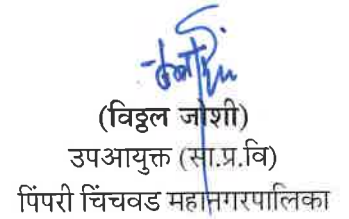 (विठ्ठल जोशी)
उपआयुक्त (सा.प्र.वि)
पिंपरी चिंचवड महानगरपालिका